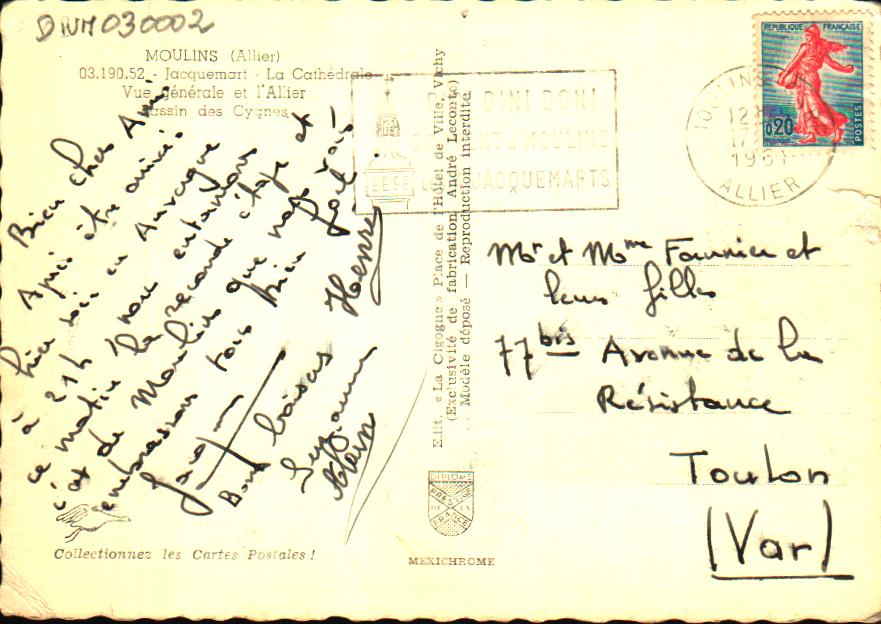 DWM 030002
MOULINS (Allier)
03.190.52 - Jacquemart - La Cathédrale
Vue générale et l'Allier
Bassin des Cygnes
Bien chers Amis
Après être arrivés
hier soir en Auvergne
à 21h nous entamons
ce matin la seconde étape et
c'est de Moulins que nous vous
embrassons tous bien fort.
Jacques
Henri
Bons baisers
Suzanne
Edit. « La Cigogne » Place de l'Hôtel de Ville, Vichy
(Exclusivité de fabrication André Leconte)
Modèle déposé — Reproduction interdite
DIN! DON!
MOULINS
JACQUEMARTS
MOULINS
12
17
1961
ALLIER
REPUBLIQUE FRANÇAISE
0,20
POSTES
Mr et Mme Fournier et
leurs filles
77 bis Avenue de la
Résistance
Toulon
(Var)
DIPLOME
PRESTIGE
DE LA
FRANCE
Collectionnez les Cartes Postales !
MEXICHROME